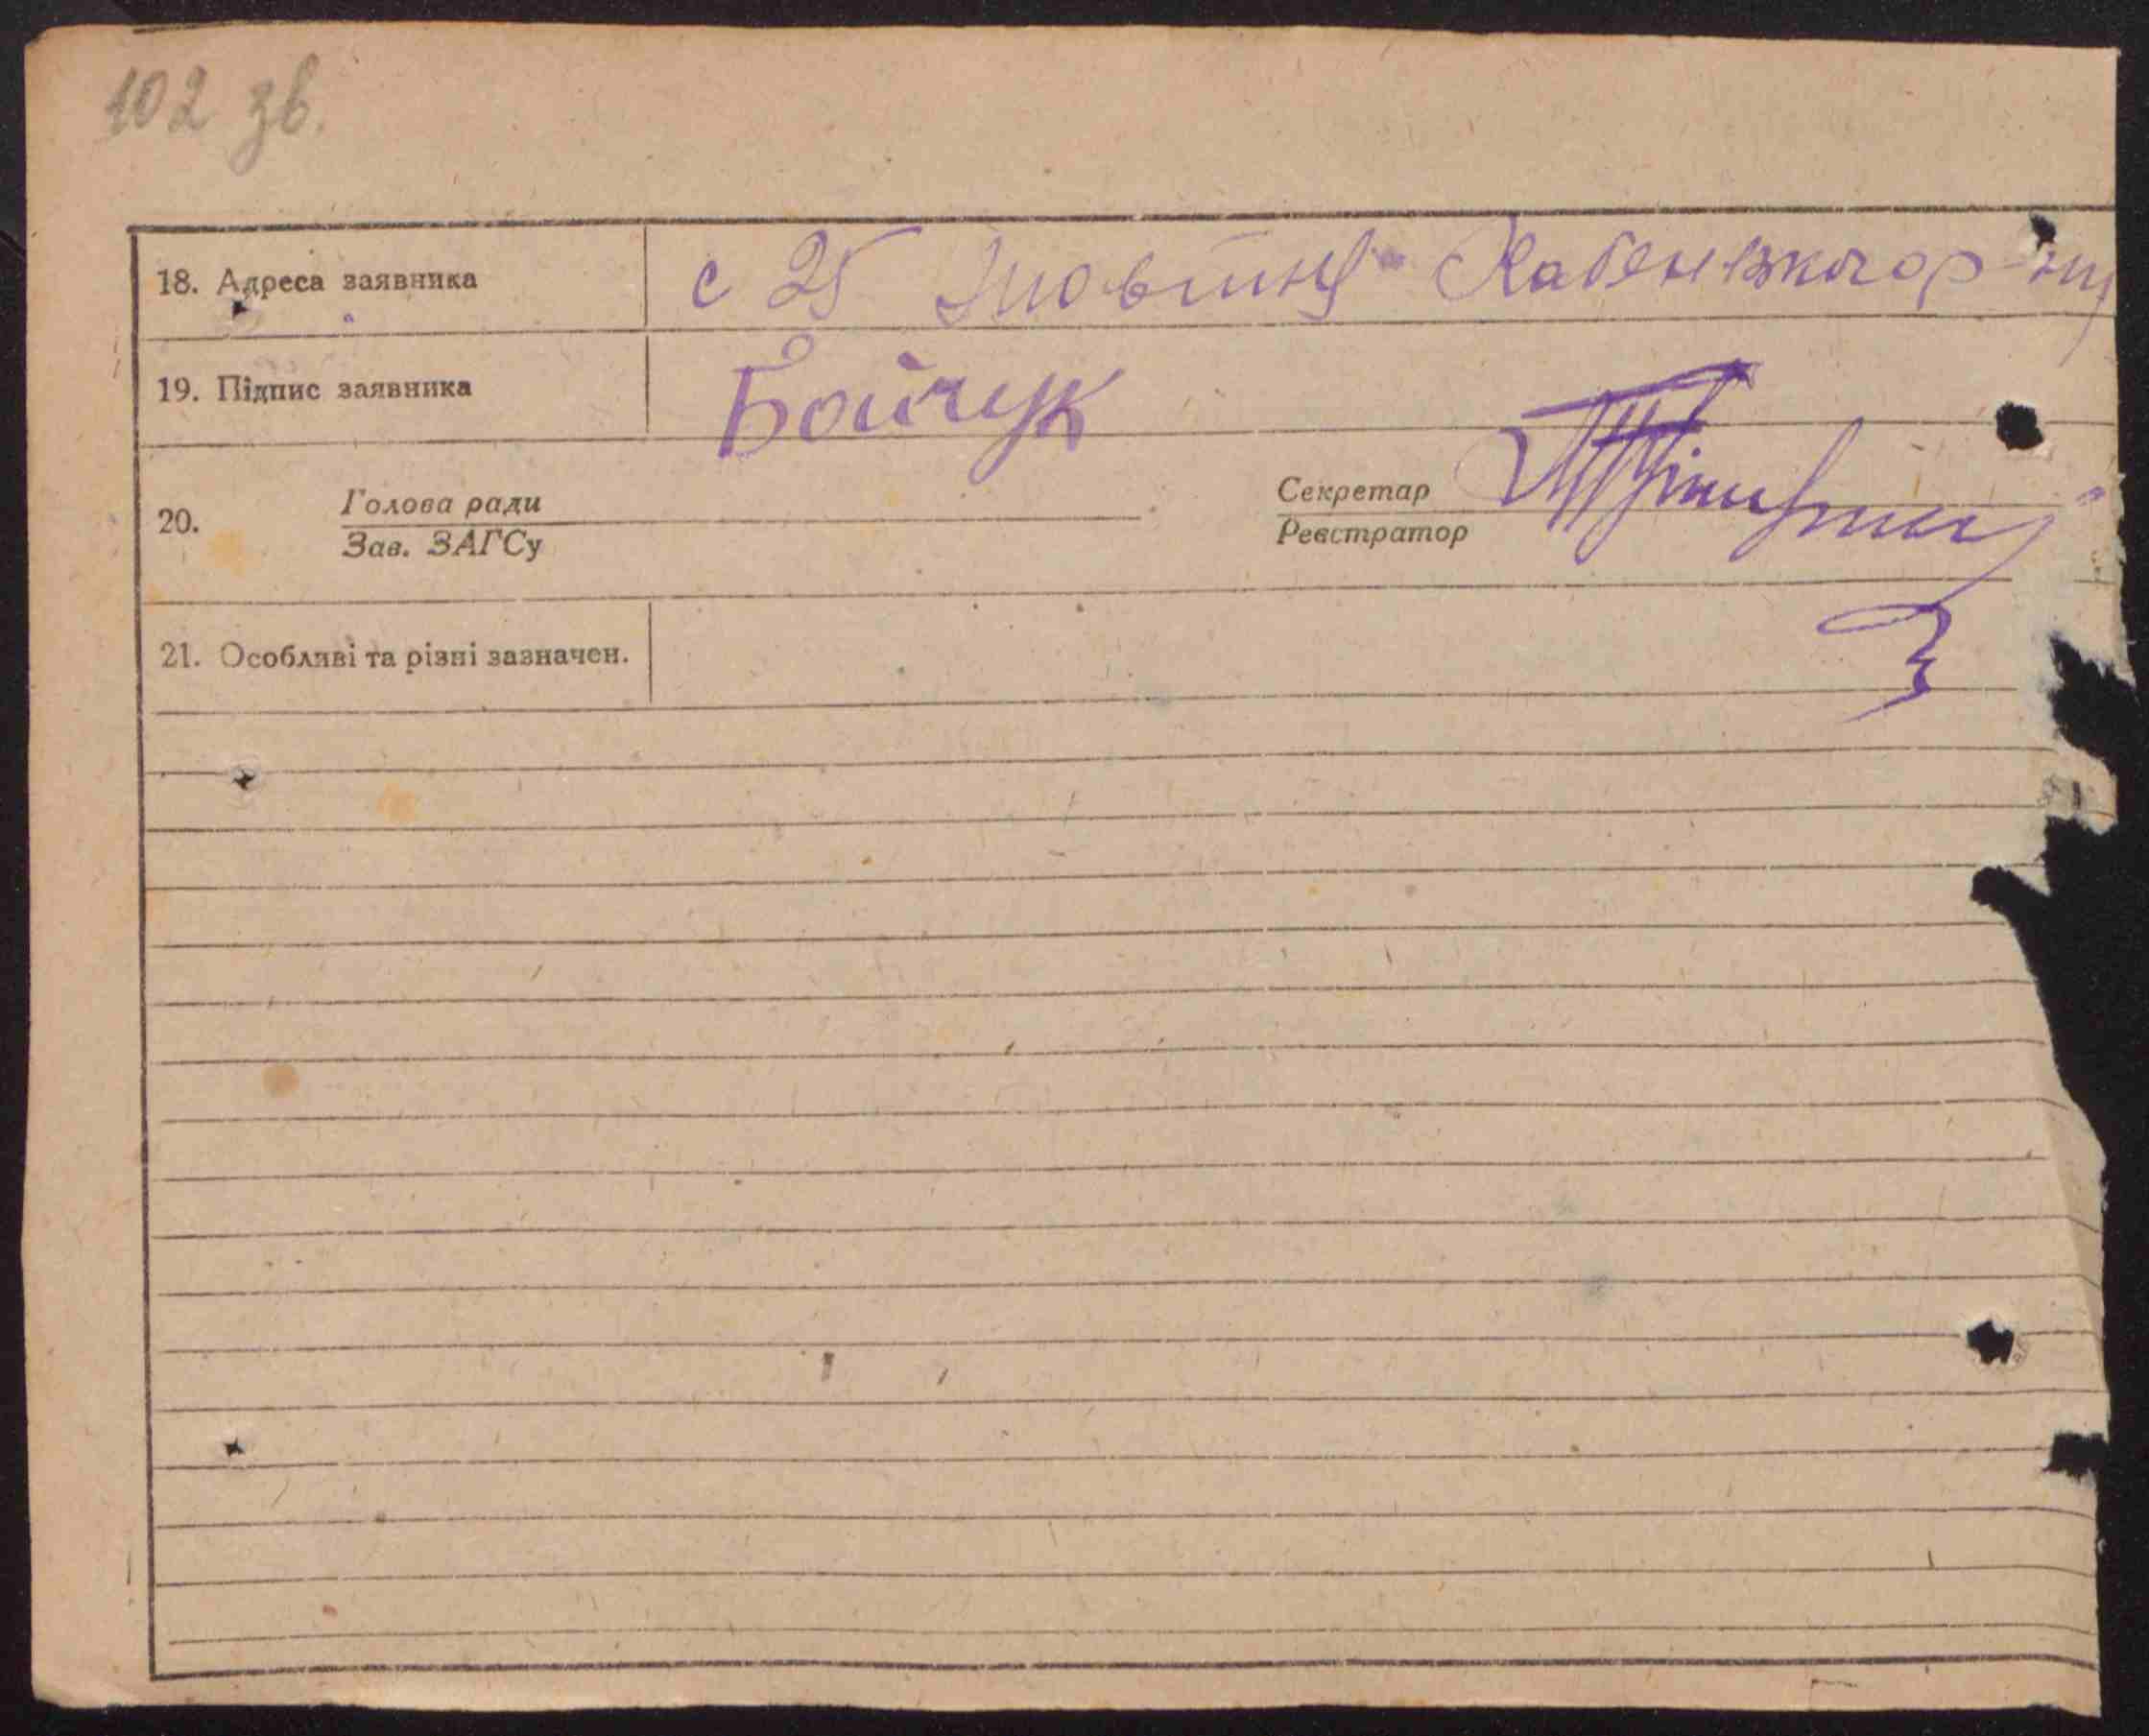 102 зв.
18. Адреса заявника с 25 Жовтня
19. Підпис заявника Бойчук
20. Голова ради Секретар
Зав. ЗАГСу Реєстратор
21. Особливі та різні зазначен.